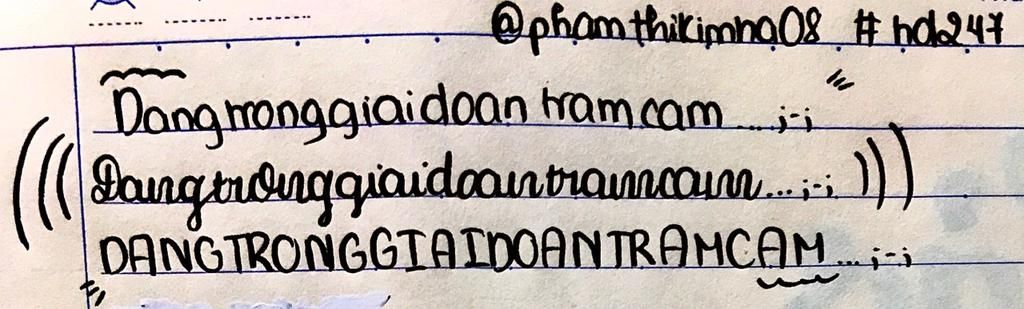 @phamthikimng08 # hd247
Dangtronggiaidoan tramcam ... ;-;
Dangtronggiaidoantramcam... ;-;
DANGTRONGGIAIDOANTRAMCAM... ;-;